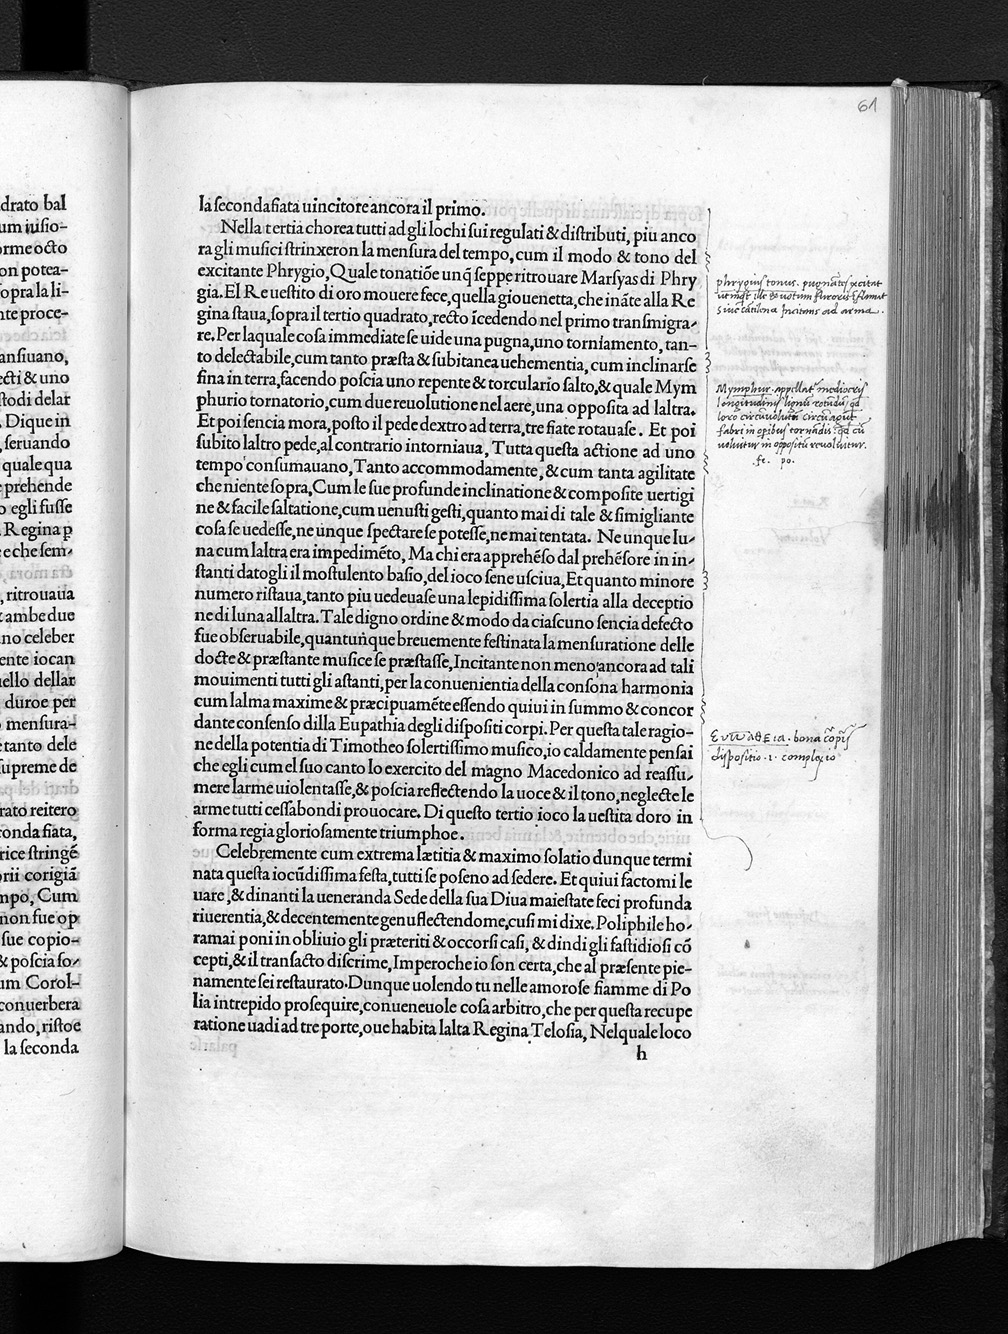 61
drato bal
um iusio-
orme octo
on potea-
sopra la li-
nte proce-
ansiuano,
ecti & uno
stodi delar
. Dique in
, seruando
quale qua
e prehende
o egli fusse
Regina ꝑ
e e che sem-
, ritrouaua
& ambe due
no celeber
ente iocan
uello dellar
duroe per
o mensura-
tanto dele
supreme de
rato reitero
conda fiata,
rice stringẽ
orii corigiã
mpo, Cum
non fue op
sue copio-
& poscia so-
um Corol-
conuerbera
ando, ristoe
la seconda
la seconda fiata uincitore ancora il primo.
Nella tertia chorea tutti ad gli lochi sui regulati & distributi, piu anco
ra gli musici strinxeron la mensura del tempo, cum il modo & tono del
excitante Phrygio, Quale tonatiõe unq̃ seppe ritrouare Marsyas di Phry
gia. El Re uestito di oro mouere fece, quella giouenetta, che inãte alla Re
gina staua, sopra il tertio quadrato, recto ĩcedendo nel primo transmigra-
re. Per laquale cosa immediate se uide una pugna, uno torniamento, tan-
to delectabile, cum tanto præsta & subitanea uehementia, cum inclinarse
fina in terra, facendo poscia uno repente & torculario salto, & quale Mym
phurio tornatorio, cum due reuolutione nel aere, una opposita ad laltra.
Et poi sencia mora, posto il pede dextro ad terra, tre fiate rotauase. Et poi
subito laltro pede, al contrario intorniaua, Tutta questa actione ad uno
tempo consumauano, Tanto accommodamente, & cum tanta agilitate
che niente sopra, Cum le sue profunde inclinatione & composite uertigi
ne & facile saltatione, cum uenusti gesti, quanto mai di tale & simigliante
cosa se uedesse, ne unque spectare se potesse, ne mai tentata. Ne unque lu-
na cum laltra era impedimẽto, Ma chi era apprehẽso dal prehẽsore in in-
stanti datogli il mostulento basio, del ioco sene usciua, Et quanto minore
numero ristaua, tanto piu uedeuase una lepidissima solertia alla deceptio
ne di luna allaltra. Tale digno ordine & modo da ciascuno sencia defecto
fue obseruabile, quantunque breuemente festinata la mensuratione delle
docte & præstante musice se præstasse, Incitante non meno ancora ad tali
mouimenti tutti gli astanti, per la conuenientia della consona harmonia
cum lalma maxime & præcipuamẽte essendo quiui in summo & concor
dante consenso dilla Eupathia degli dispositi corpi. Per questa tale ragio-
ne della potentia di Timotheo solertissimo musico, io caldamente pensai
che egli cum el suo canto lo exercito del magno Macedonico ad reassu-
mere larme uiolentasse, & poscia reflectendo la uoce & il tono, neglecte le
arme tutti cessabondi prouocare. Di questo tertio ioco la uestita doro in
forma regia gloriosamente triumphoe.
Celebremente cum extrema lætitia & maximo solatio dunque termi
nata questa iocũdissima festa, tutti se poseno ad sedere. Et quiui factomi le
uare, & dinanti la ueneranda Sede della sua Diua maiestate feci profunda
riuerentia, & decentemente genuflectendome, cusi mi dixe. Poliphile ho-
ramai poni in obliuio gli præteriti & occorsi casi, & dindi gli fastidiosi cõ
cepti, & il transacto discrime, Imperoche io son certa, che al præsente pie-
namente sei restaurato. Dunque uolendo tu nelle amorose fiamme di Po
lia intrepido prosequire, conueneuole cosa arbitro, che per questa recupe
ratione uadi ad tre porte, oue habita lalta Regina Telosia, Nelquale loco
h
phrygius tonus. pugnates excitat
siue catilena Incitans ad arma.
Mymphur appellat mediocris
longitudinis lignũ rotũdũ qd
loro circũuolutũ circũagũt
fabri in opibus tornãdis: qd cũ
voluitur in oppositũ reuoluitur.
fe. po.
Ευπαθεια. bona corpis
dispositio .i. complexio